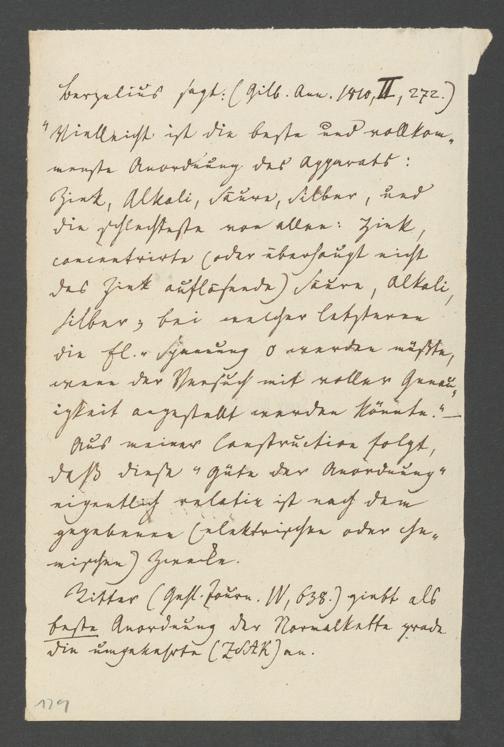 Berzelius sagt: (Gilb. Ann. 1810, II, 272.)
"Vielleicht ist die beste und vollkom-
menste Anordnung des Apparats:
Zink, Alkali, Säure, Silber, und
die schlechteste von allen: Zink,
concentrirte (oder überhaupt nicht
das Zink auflösende) Säure, Alkali,
Silber; bei welcher letzteren
die El.-Spannung 0 werden müßte,
wenn der Versuch mit voller Genau-
igkeit angestellt werden könnte."—
Aus meiner Construction folgt,
daß diese "Güte der Anordnung"
eigentlich relativ ist nach dem
gegebenen (elektrischen oder che-
mischen) Zwecke.
Ritter (Gehl. Journ. IV, 638.) giebt als
beste Anordnung der Normalkette grade
die umgekehrte (ZSAK) an.